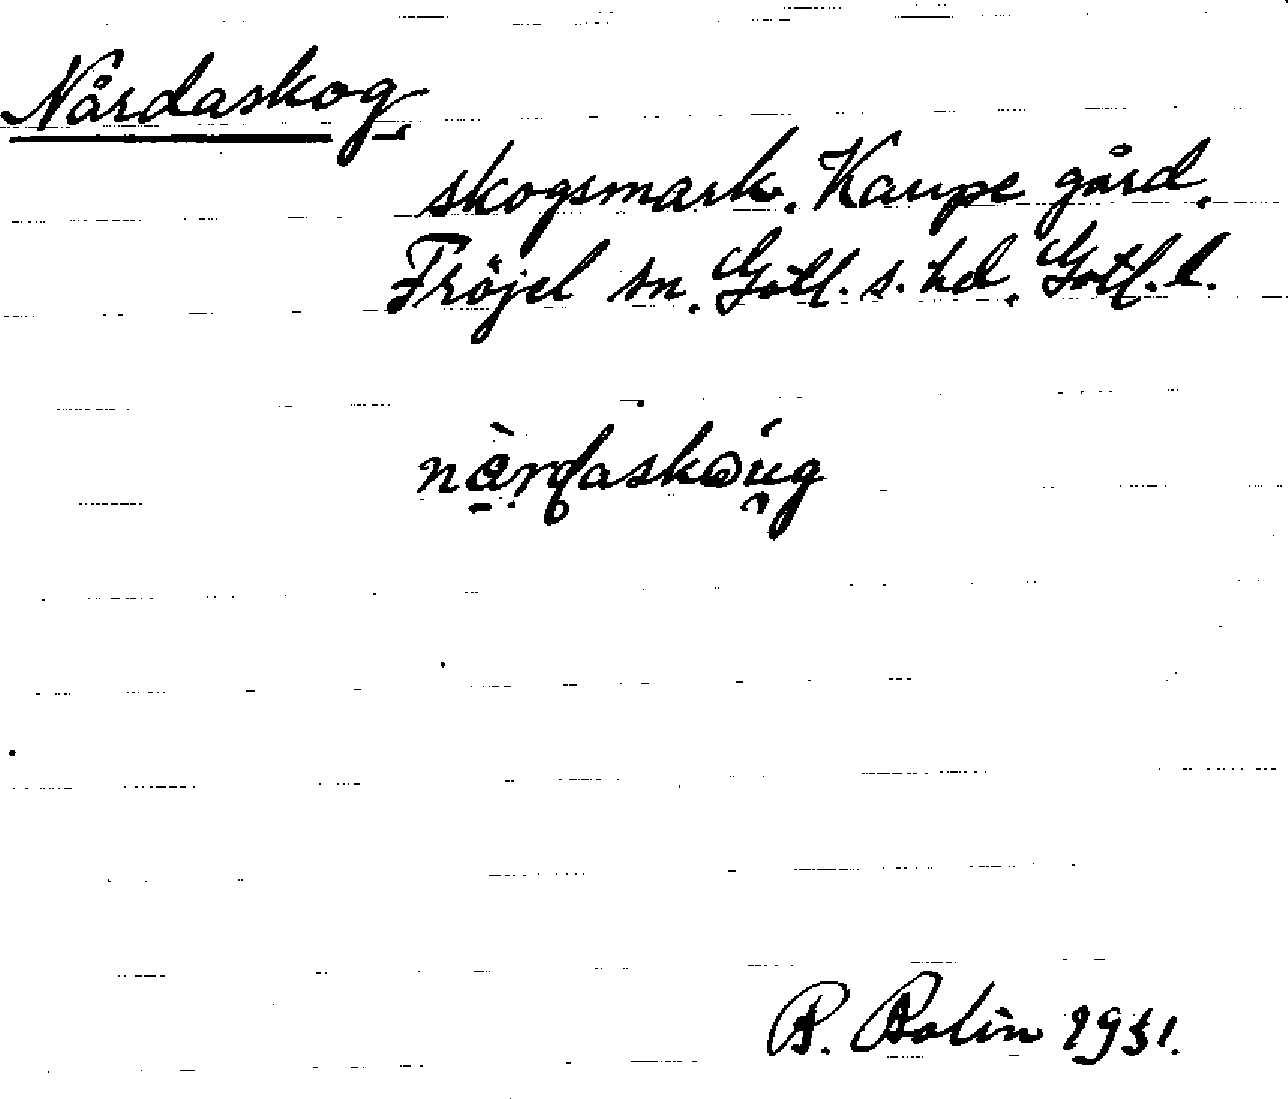 Nårdaskog,
skogsmark. Kaupe gård.
Fröjel sn. Gotl. s. hd. Gotl. l.
1931.